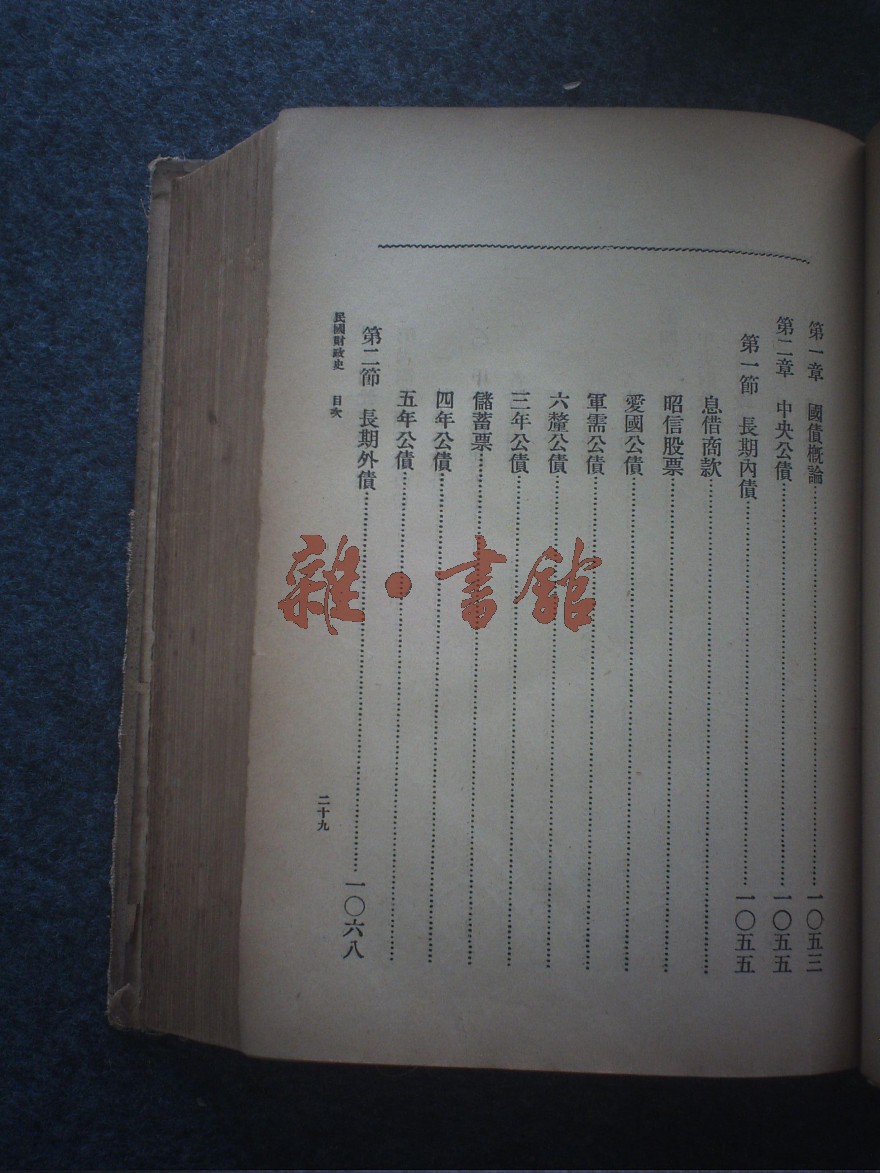 第一章　國債概論……一〇五三
第二章　中央公債……一〇五五
第一節　長期內債……一〇五五
息借商款……
昭信股票……
愛國公債……
軍需公債……
六釐公債……
三年公債……
儲蓄票……
四年公債……
五年公債……
第二節　長期外債……一〇六八
民國財政史　目次
二十九
雜·書館